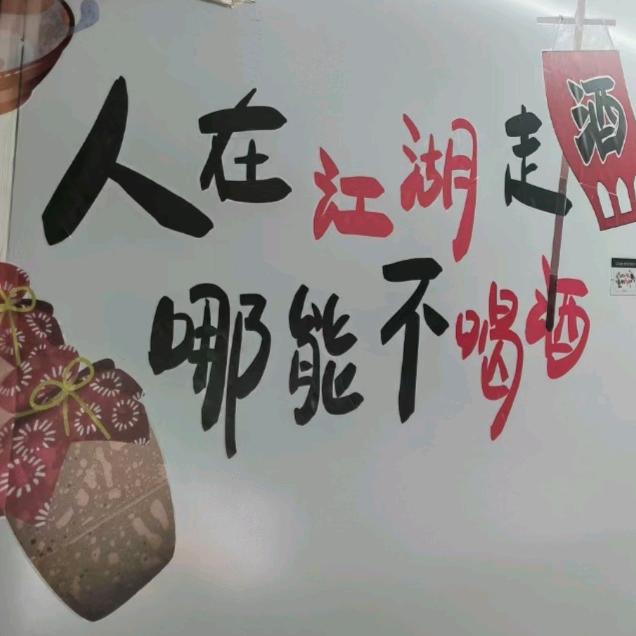 人在江湖走
酒
哪能不喝酒